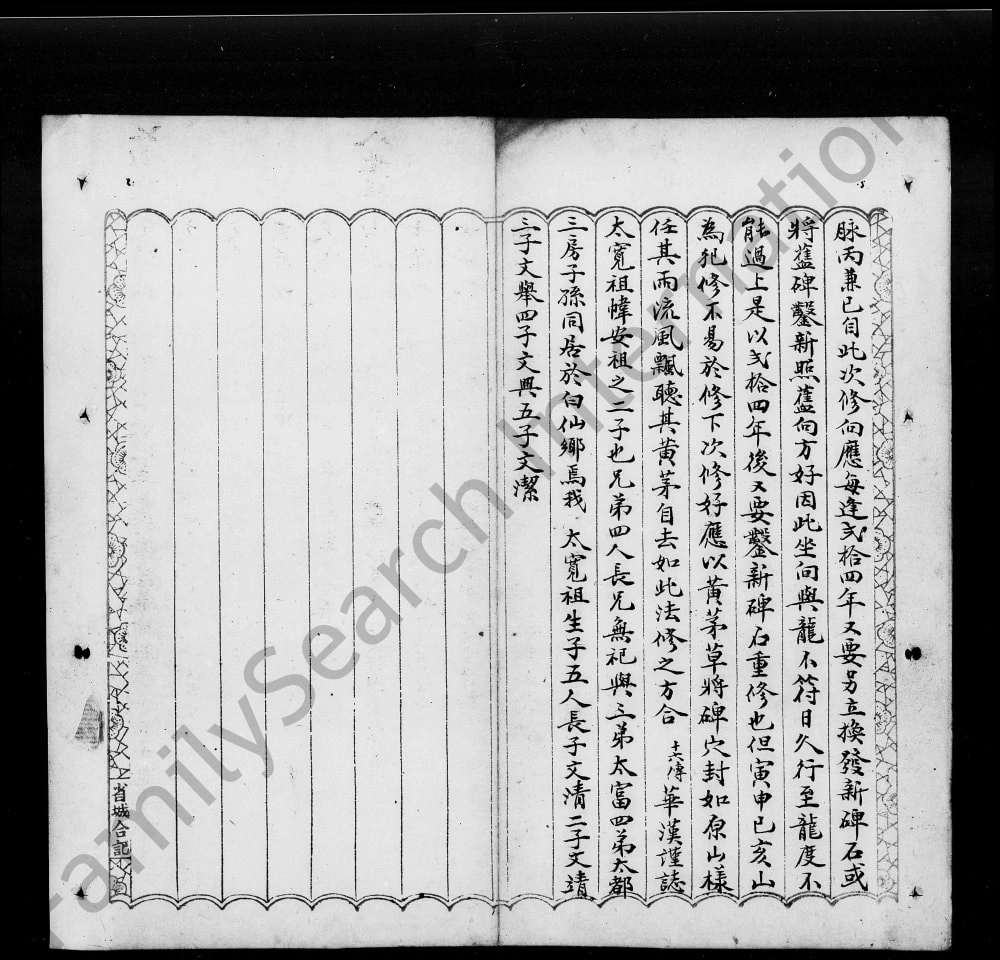 脉丙兼巳自此次修向應每逢弍拾四年又要另立換發新碑石或
將舊碑鑿新照舊向方好因此坐向與龍不符日久行至龍度不
能過上是以弍拾四年後又要鑿新碑石重修也但寅申巳亥山
為犯修不易於修下次修好應以黃茅草將碑穴封如原山樣
任其雨流風飄聽其黃茅自去如此法修之方合 十六傳華漢謹誌
太寬祖幃安祖之二子也兄弟四人長兄無祀與三弟太富四弟太都
三房子孫同居於白仙鄉焉我 太寬祖生子五人長子文清二子文靖
三子文舉四子文興五子文潔
省城合記
FamilySearch International